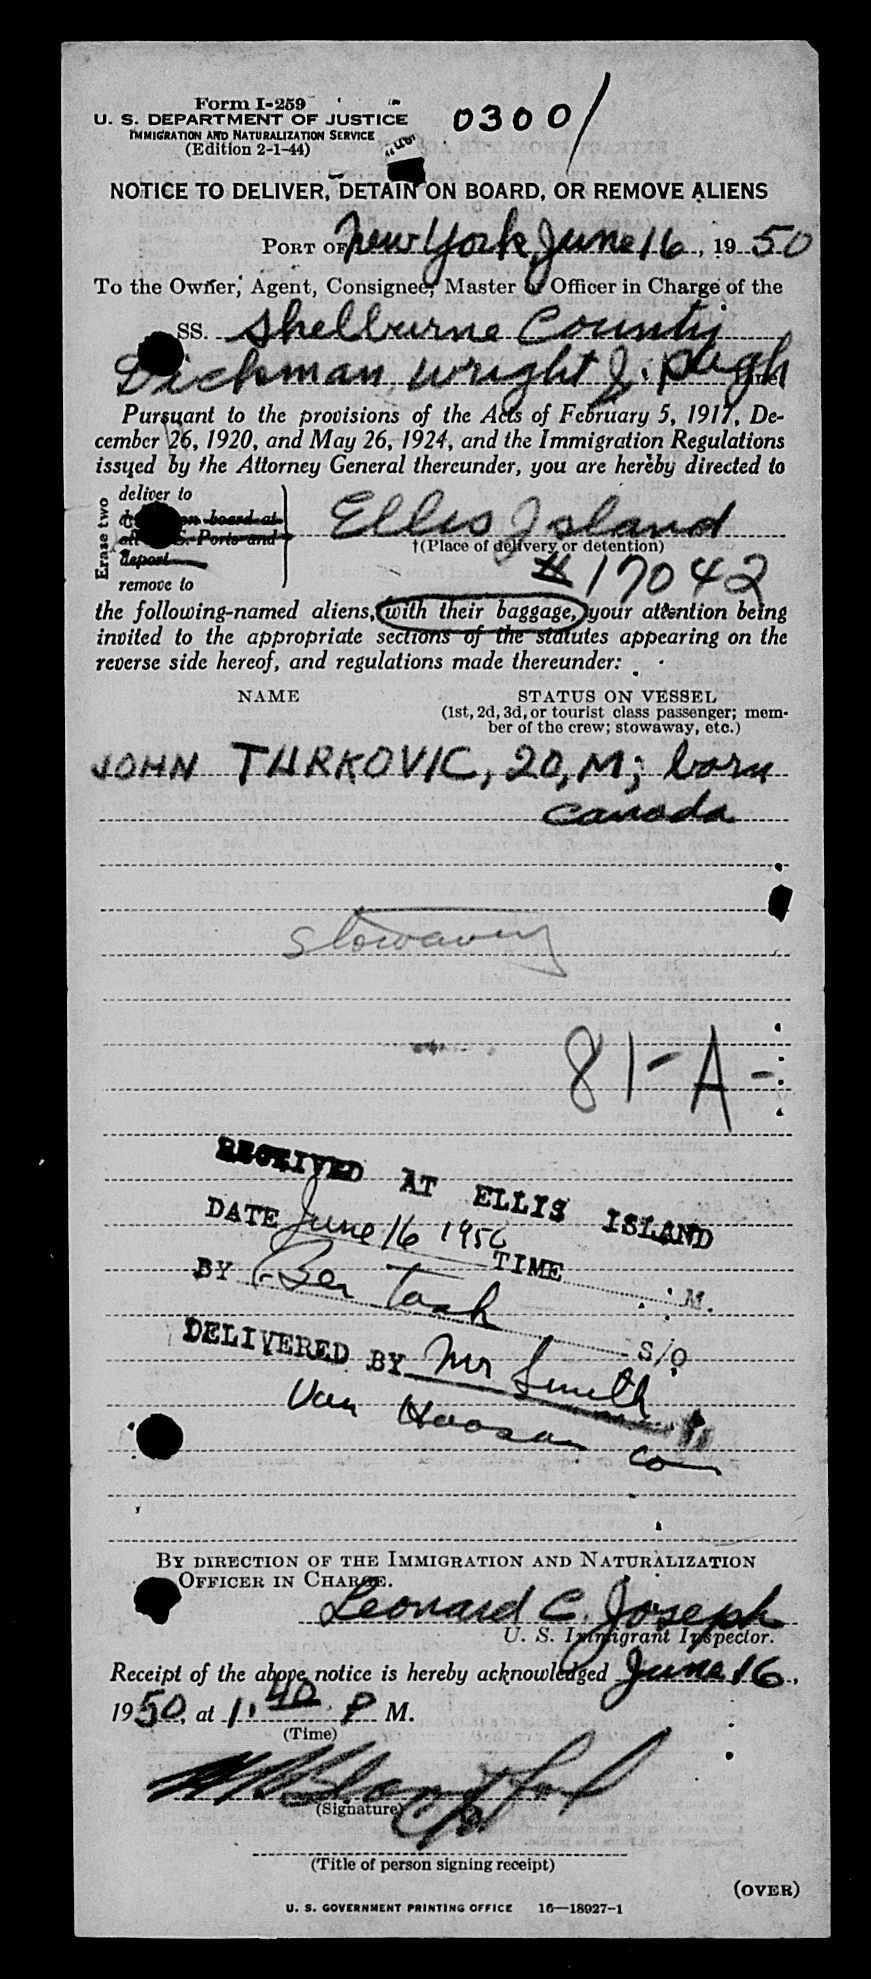 Form I-259
U. S. DEPARTMENT OF JUSTICE
IMMIGRATION AND NATURALIZATION SERVICE
(Edition 2-1-44)
0300/
NOTICE TO DELIVER, DETAIN ON BOARD, OR REMOVE ALIENS
PORT OF New York, June 16, 1950
To the Owner, Agent, Consignee, Master or Officer in Charge of the
SS. Shelburne County
Dichman Wright & Pugh Line
Pursuant to the provisions of the Acts of February 5, 1917, De-
cember 26, 1920, and May 26, 1924, and the Immigration Regulations
issued by the Attorney General thereunder, you are hereby directed to
Erase two
deliver to
on board at
all U.S. Ports and
deport
remove to
Ellis Island
†(Place of delivery or detention)
# 17042
the following-named aliens, with their baggage, your attention being
invited to the appropriate sections of the statutes appearing on the
reverse side hereof, and regulations made thereunder:
NAME
STATUS ON VESSEL
(1st, 2d, 3d, or tourist class passenger; mem-
ber of the crew; stowaway, etc.)
JOHN TURKOVIC, 20, M; born
Canada
Stowaway
81-A-
RECEIVED AT ELLIS ISLAND
DATE June 16 1950 TIME M.
BY Ben Tash S/O
DELIVERED BY Mr Smith
Van Co
BY DIRECTION OF THE IMMIGRATION AND NATURALIZATION
OFFICER IN CHARGE.
Leonard C. Joseph
U. S. Immigrant Inspector.
Receipt of the above notice is hereby acknowledged June 16,
1950, at 1:40 P M.
(Time)
(Signature)
(Title of person signing receipt)
(OVER)
U. S. GOVERNMENT PRINTING OFFICE 16—18927-1